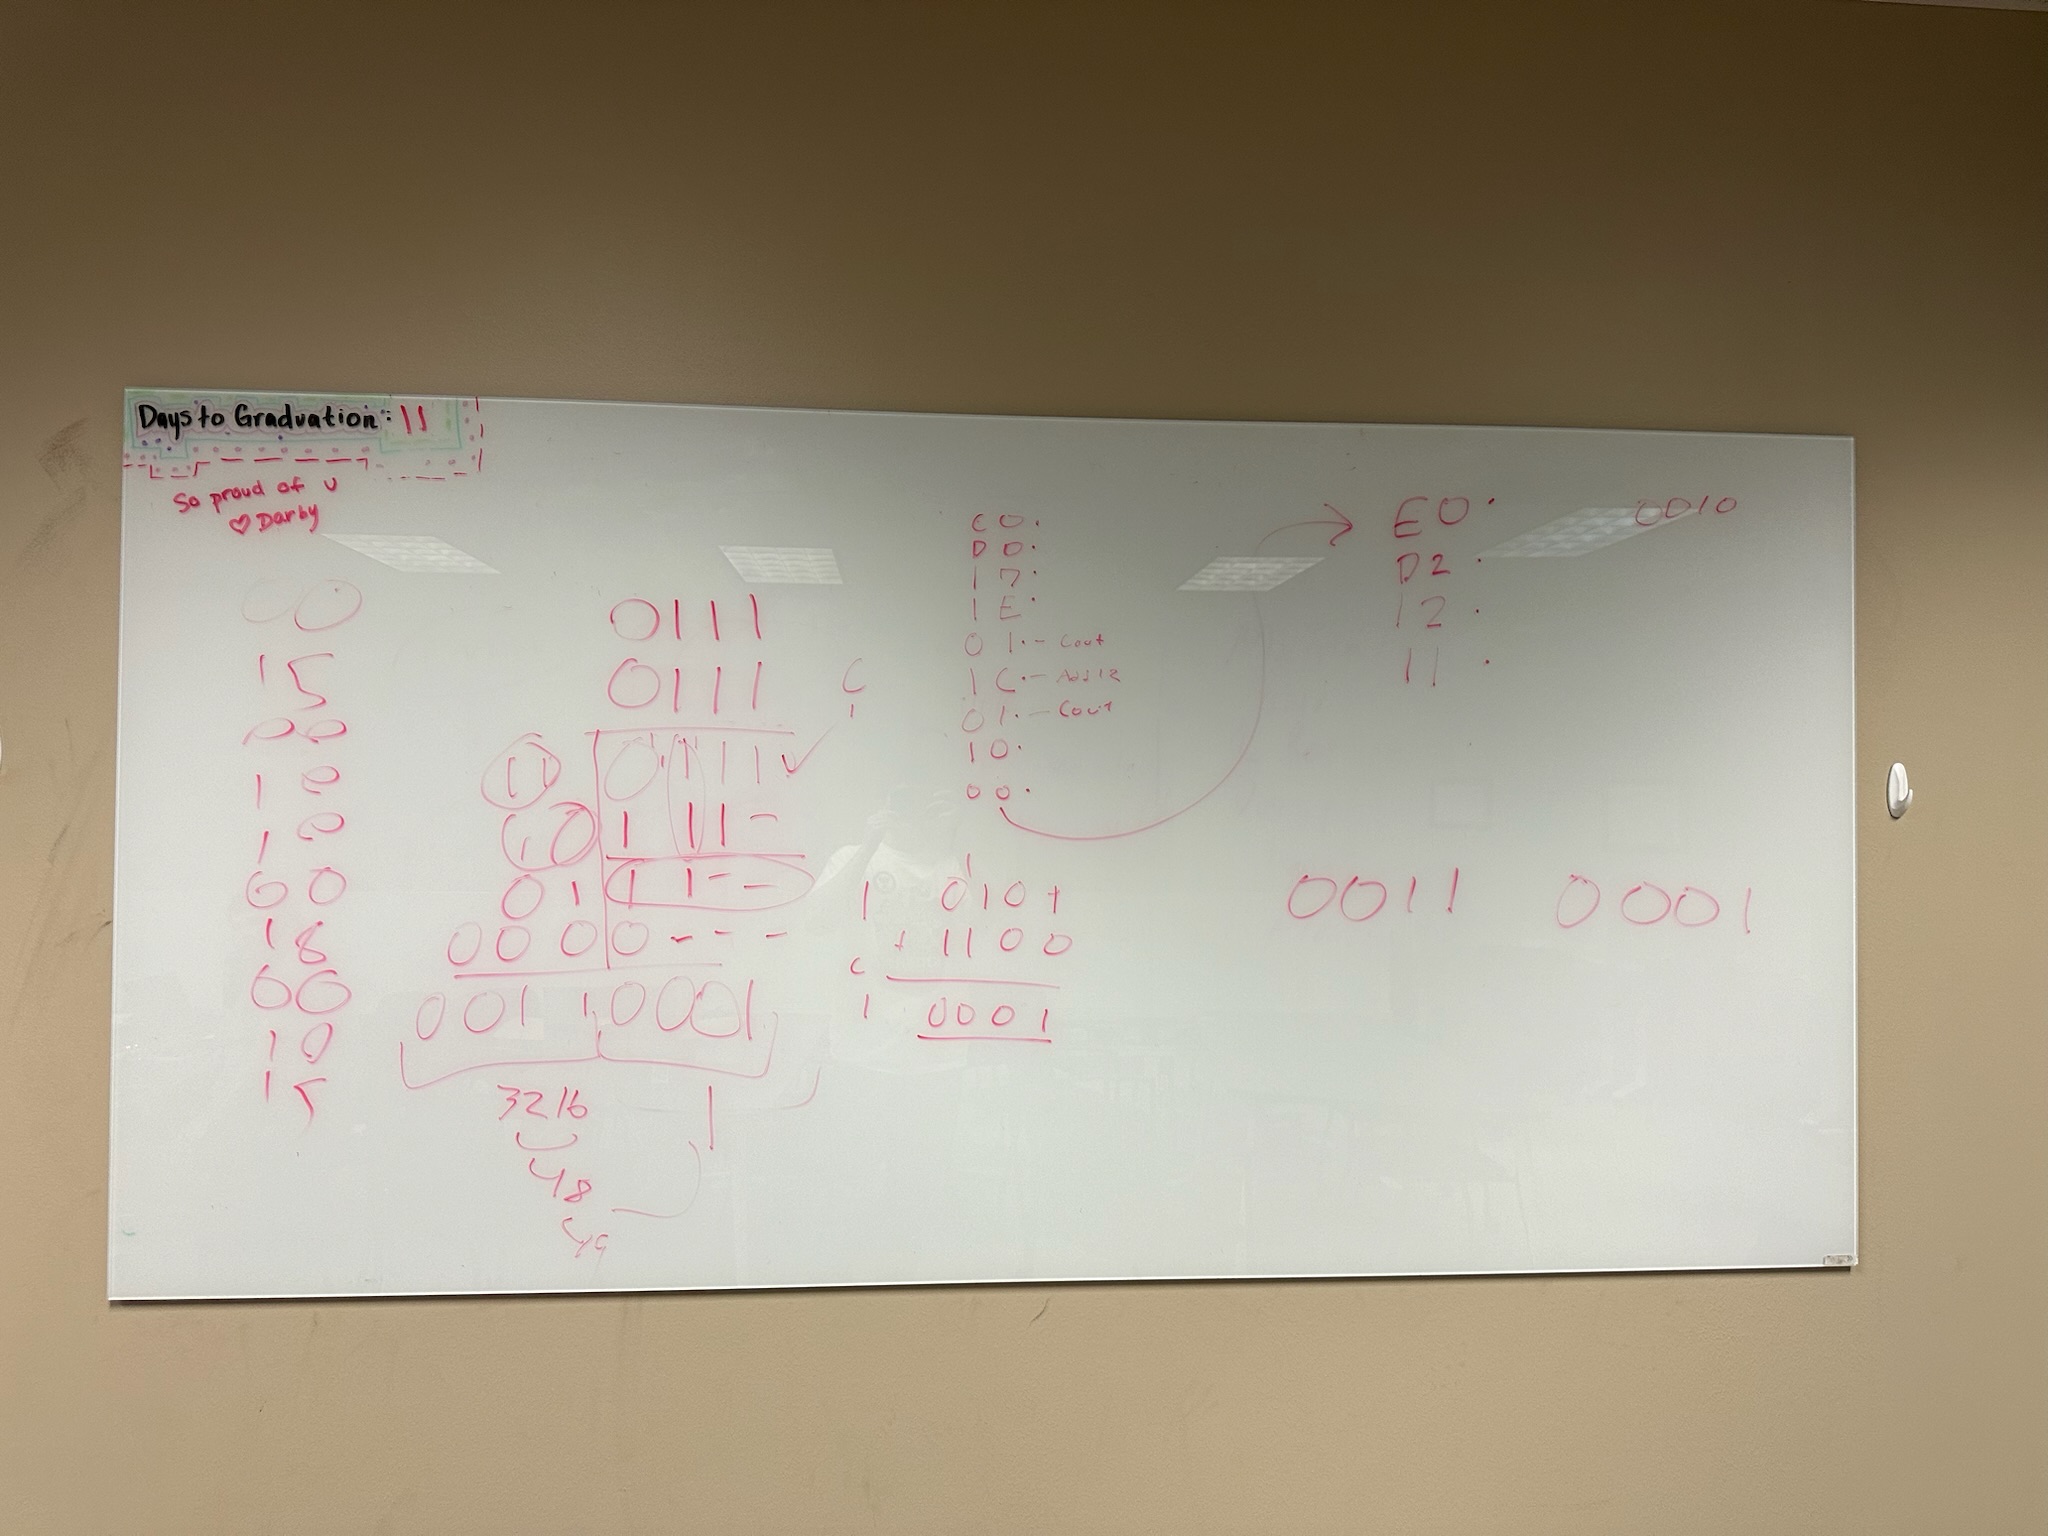 Days to Graduation: 11
So proud of u
♡ Darby
00
15
00
10
10
00
18
00
10
15
0111
0111
11 0111
10 111-
01 11--
0000---
0011 0001
3216 1
48
49
C
1
C0.
D0.
17.
1E.
01.- Cout
1C.- Add 12
01.- Cout
10.
00.
1
1 0101
+ 1100
C
1 0001
E0. 0010
D2.
12.
11.
0011 0001